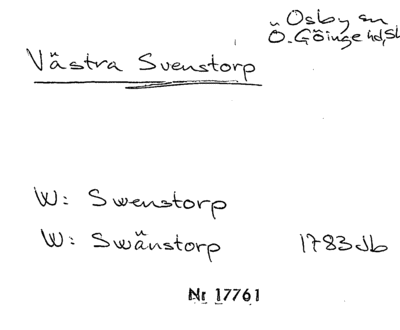 Osby sn
Ö. Göinge hd, Sk
Västra Svenstorp
W: Swenstorp
W: Swänstorp 1783 Jb
Nr 17761